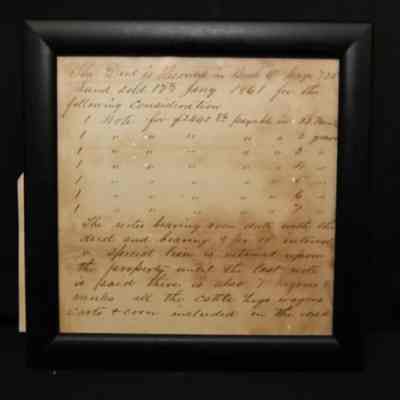 The Deed is Recorded in Book G page 720
Land sold 15th Jany 1861 for the
following Consideration
1 Note for $2640 payable in 12 Months
1 " " " " " 2 years
1 " " " " " 3 "
1 " " " " " 4 "
1 " " " " " 5 "
1 " " " " " 6 "
1 " " " " " 7 "
The notes bearing even date with the
deed and bearing 8 per ct interest
a special lien is retained upon
the property until the last note
is paid there is also 7 negroes
mules all the cattle hogs wagons
carts & corn included in the deed